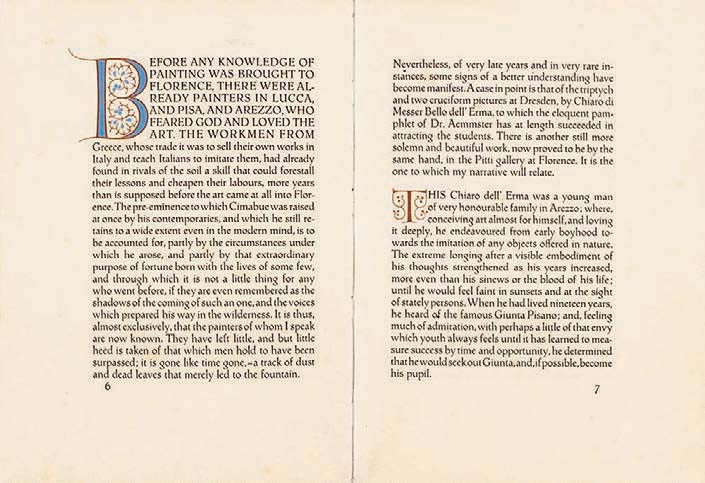 BEFORE ANY KNOWLEDGE OF
PAINTING WAS BROUGHT TO
FLORENCE, THERE WERE AL-
READY PAINTERS IN LUCCA,
AND PISA, AND AREZZO, WHO
FEARED GOD AND LOVED THE
ART. THE WORKMEN FROM
Greece, whose trade it was to sell their own works in
Italy and teach Italians to imitate them, had already
found in rivals of the soil a skill that could forestall
their lessons and cheapen their labours, more years
than is supposed before the art came at all into Flor-
ence. The pre-eminence to which Cimabue was raised
at once by his contemporaries, and which he still re-
tains to a wide extent even in the modern mind, is to
be accounted for, partly by the circumstances under
which he arose, and partly by that extraordinary
purpose of fortune born with the lives of some few,
and through which it is not a little thing for any
who went before, if they are even remembered as the
shadows of the coming of such an one, and the voices
which prepared his way in the wilderness. It is thus,
almost exclusively, that the painters of whom I speak
are now known. They have left little, and but little
heed is taken of that which men hold to have been
surpassed; it is gone like time gone,-a track of dust
and dead leaves that merely led to the fountain.
6
Nevertheless, of very late years and in very rare in-
stances, some signs of a better understanding have
become manifest. A case in point is that of the triptych
and two cruciform pictures at Dresden, by Chiaro di
Messer Bello dell' Erma, to which the eloquent pam-
phlet of Dr. Aemmster has at length succeeded in
attracting the students. There is another still more
solemn and beautiful work, now proved to be by the
same hand, in the Pitti gallery at Florence. It is the
one to which my narrative will relate.
THIS Chiaro dell' Erma was a young man
of very honourable family in Arezzo; where,
conceiving art almost for himself, and loving
it deeply, he endeavoured from early boyhood to-
wards the imitation of any objects offered in nature.
The extreme longing after a visible embodiment of
his thoughts strengthened as his years increased,
more even than his sinews or the blood of his life;
until he would feel faint in sunsets and at the sight
of stately persons. When he had lived nineteen years,
he heard of the famous Giunta Pisano; and, feeling
much of admiration, with perhaps a little of that envy
which youth always feels until it has learned to mea-
sure success by time and opportunity, he determined
that he would seek out Giunta, and, if possible, become
his pupil.
7